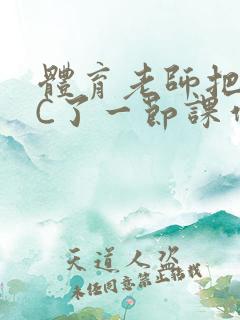 體育老師把
C了一節課
天道人盜
未任同意禁止结我